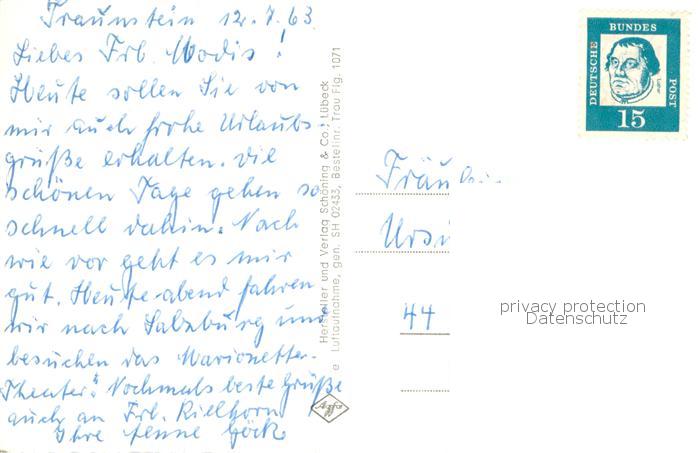 Traunstein 12.7.63.
Liebes Frl. Modis!
Heute sollen Sie von
mir auch frohe Urlaubs-
grüße erhalten. Die
schönen Tage gehen so
schnell dahin. Nach
wie vor geht es mir
gut. Heute abend fahren
wir nach Salzburg und
besuchen das Marionetten-
Theater. Nochmals beste Grüße
auch an Frl. Rielhorn
Ihre
Hersteller und Verlag Schöning & Co., Lübeck
Luftaufnahme, gen. SH 02433, Bestellnr. Trau Flg. 1071
DEUTSCHE
BUNDES
POST
Luther
15
Fräulein
Ursu
44
privacy protection
Datenschutz